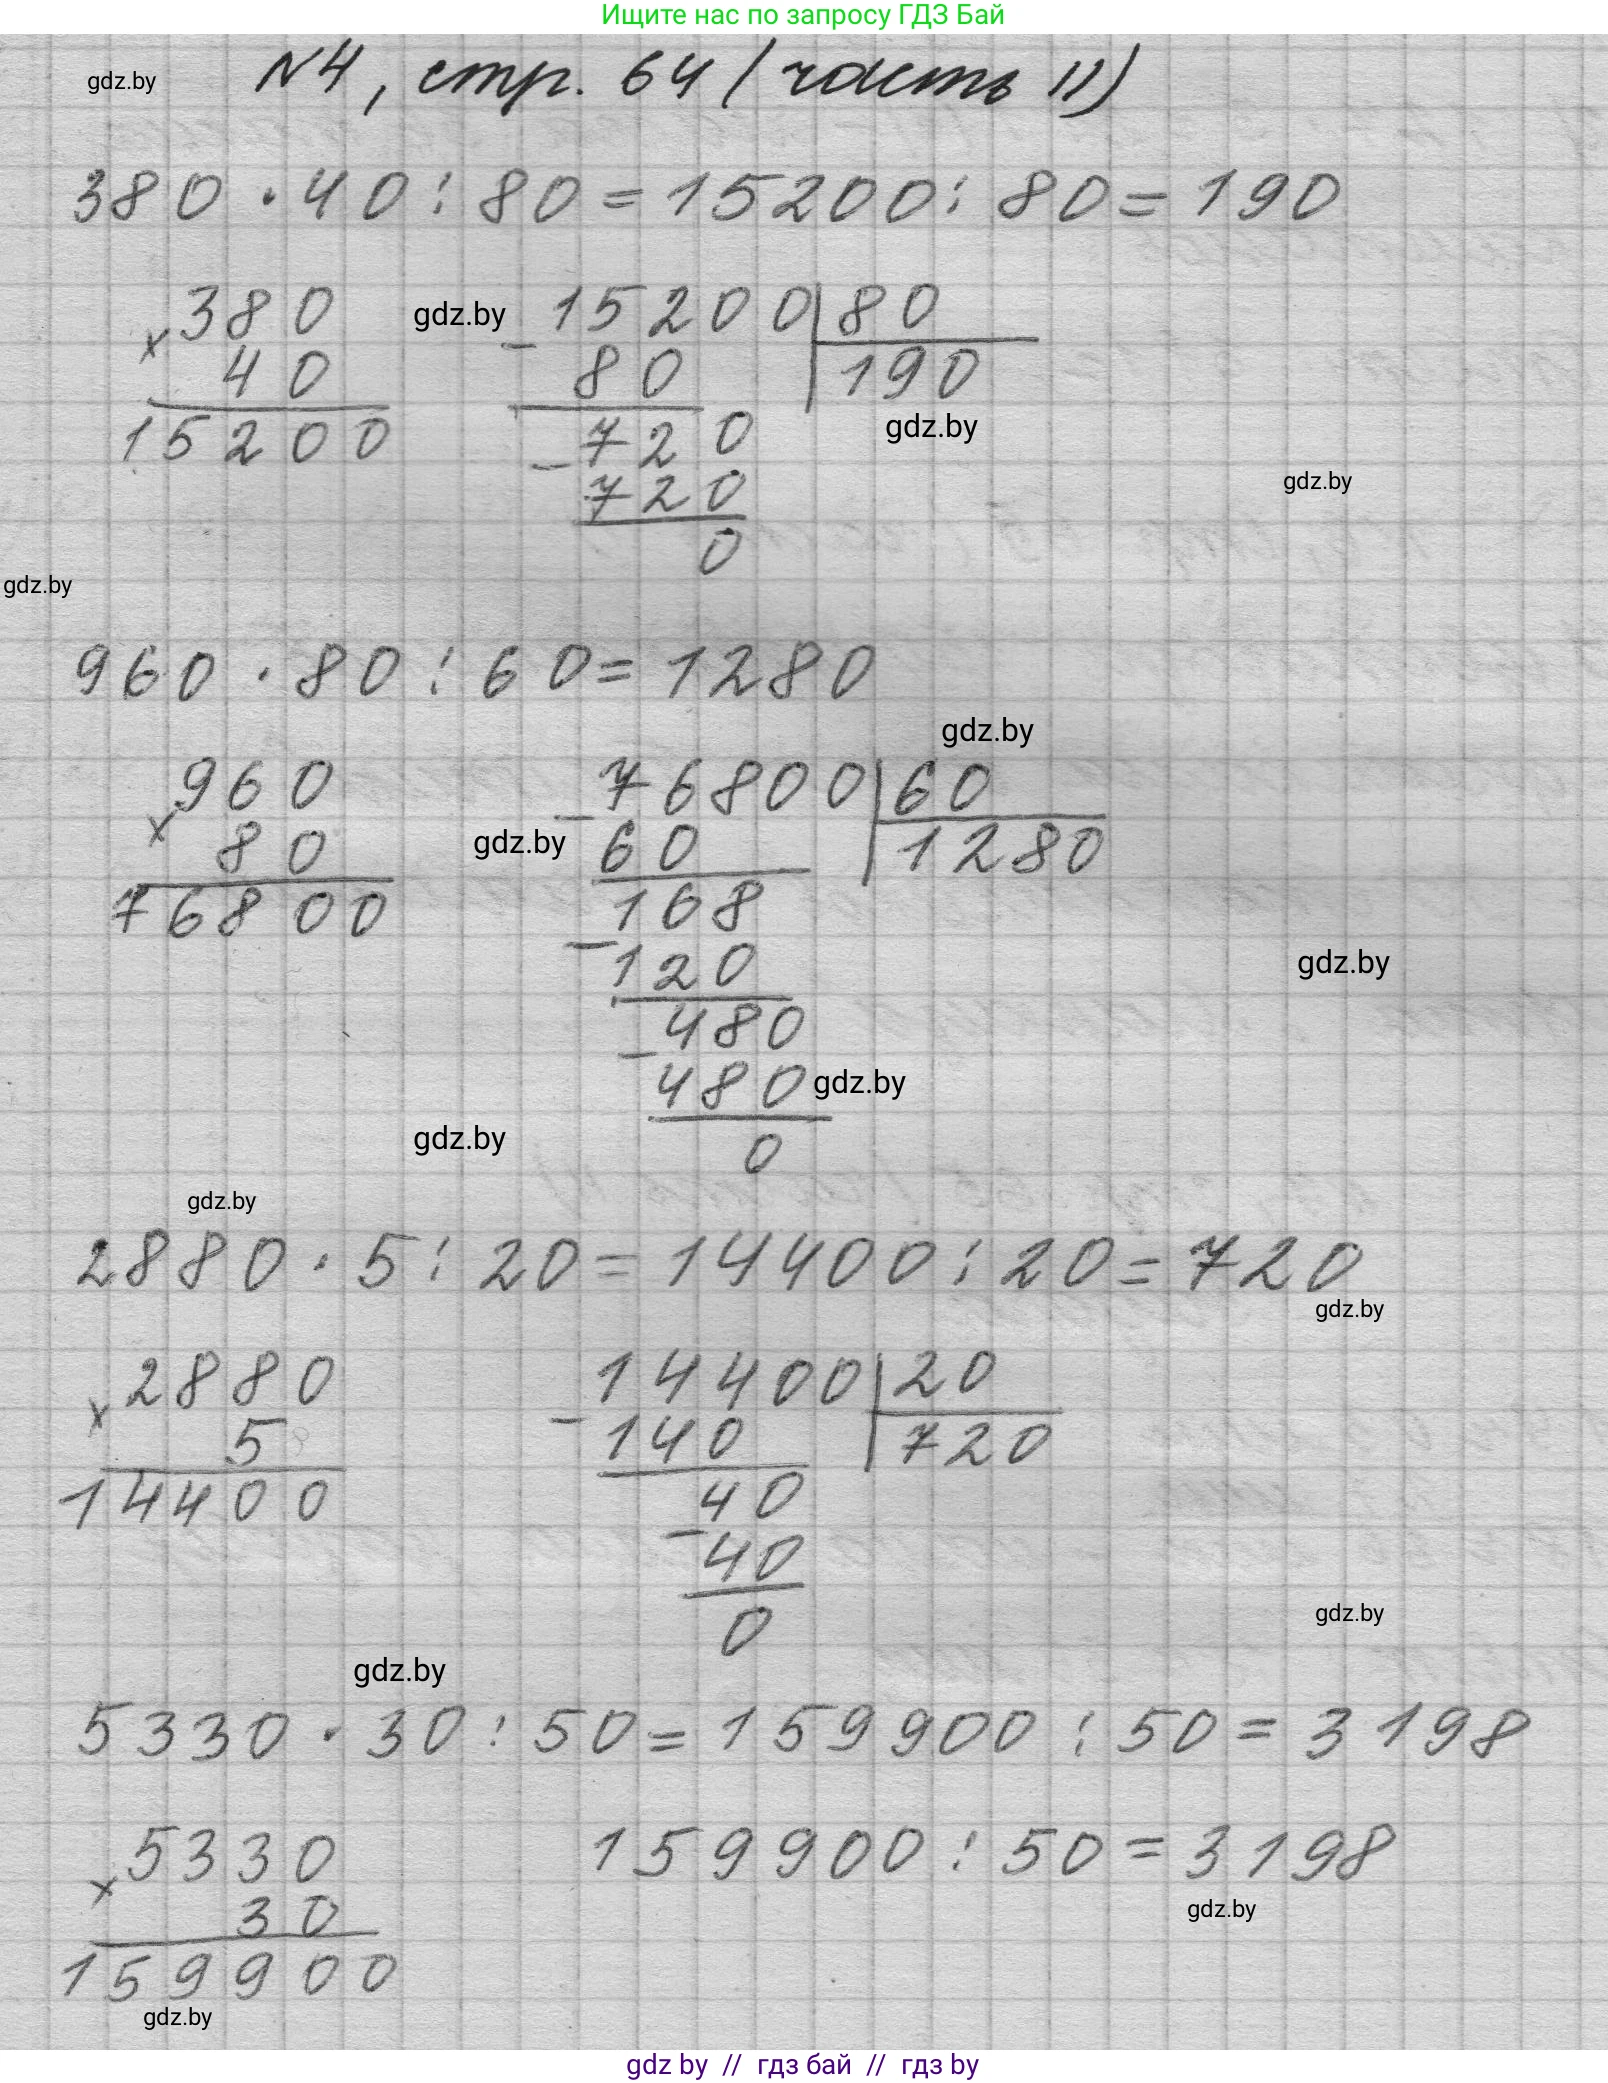 Ищите нас по запросу ГДЗ Бай
gdz.by
№4, стр. 64 (часть II)
380 · 40 : 80 = 15200 : 80 = 190
380
× 40
15200
gdz.by
15200 | 80
− 80 | 190
720
− 720
0
gdz.by
gdz.by
gdz.by
960 · 80 : 60 = 1280
gdz.by
960
× 80
76800
gdz.by
76800 | 60
− 60 | 1280
168
− 120
480
− 480
0
gdz.by
gdz.by
gdz.by
gdz.by
2880 · 5 : 20 = 14400 : 20 = 720
gdz.by
2880
× 5
14400
14400 | 20
− 140 | 720
40
− 40
0
gdz.by
gdz.by
5330 · 30 : 50 = 159900 : 50 = 3198
5330
× 30
159900
159900 : 50 = 3198
gdz.by
gdz.by
gdz by // гдз бай // гдз by